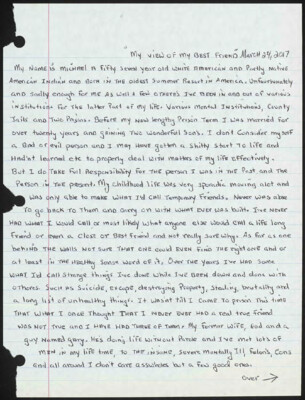 "My view of my Best Friend" March 24, 2017
My Name is Michael a Fifty seven year old white American and Partly Native
American Indian and Born in the oldest Summer Resort in America. Unfortunately
and Sadly enough for me as well a few others I've been in and out of various
institutions for the latter Part of my life. Various Mental Institutions, County
Jails and Two Prisons. Before my now lengthy Prison Term I was married for
over twenty years and gaining Two Wonderful Sons. I don't consider myself
a Bad or evil person and I may have gotten a shitty start To life and
Hadn't learned etc to properly deal with matters of my life effectively.
But I do Take full Responsibility For THE person I was in the Past and The
Person in THE present. My Childhood life was very sporadic moving alot and
was only able to make what I'd call Temporary Friends. Never was able
To go back to Them and carry on with what ever was Both. I've never
Had what I would call or most likely what anyone else would call a life long
Friend or even a close or Best Friend and not really sure why. As for as one
behind THE walls. Not sure THAT one could even Find THE right one and or
at least in THE Healthy Sense Word of it. Over THE years I've Had some
what I'd call Strange things I've done while I've been down and done with
others. Such as Suicide, escape, destroying Property, Stealing, brutality and
a long list of unhealthy things. It wasn't till I came to prison This time
THAT what I once Thought THAT I never ever had a real true friend
was not true and I HAVE HAD THREE of THEM. My Former wife, Dad and a
guy Named Gary. He's doing life without Parole and I've met lots of
men in my life time, To THE insane, severe mentally Ill, felons, Cons
and all around I don't care assholes but a few good ones.
over →